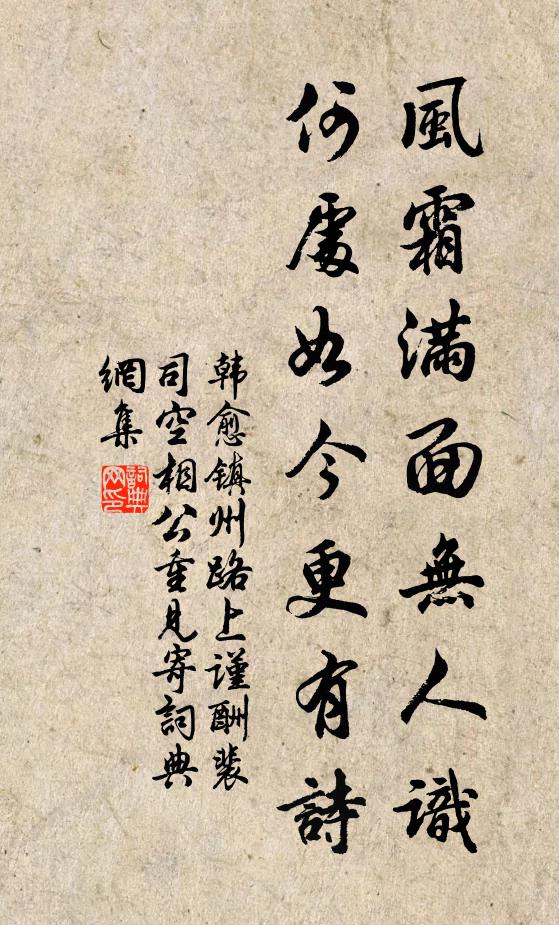 風霜滿面無人識
何處如今更有詩
韩愈镇州路上谨酬裴
司空相公重見寄詞典
網集
詞典网印